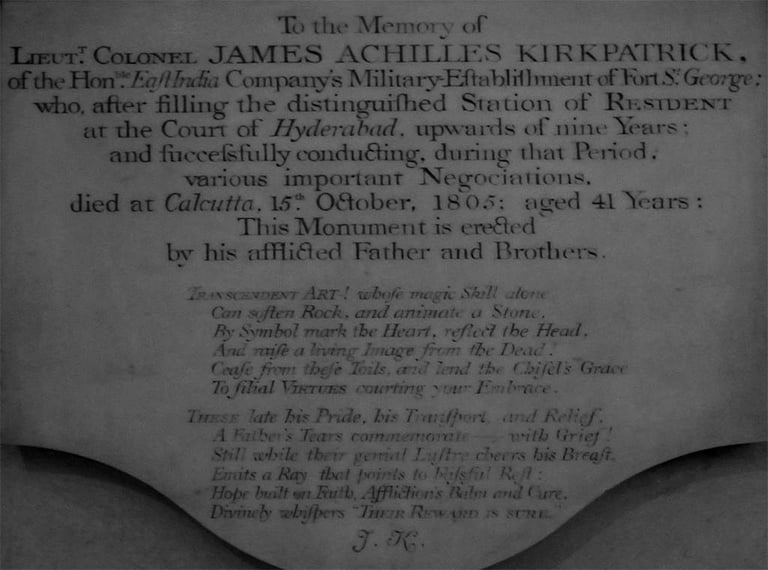 To the Memory of
LIEUT.T COLONEL JAMES ACHILLES KIRKPATRICK,
of the Hon.ble Eaſt India Company's Military-Eſtabliſhment of Fort S.t George;
who, after filling the diſtinguiſhed Station of RESIDENT
at the Court of Hyderabad, upwards of nine Years;
and ſucceſsfully conducting, during that Period,
various important Negociations,
died at Calcutta, 15.th October, 1805; aged 41 Years:
This Monument is erected
by his afflicted Father and Brothers.
TRANSCENDENT ART! whoſe magic Skill alone
Can ſoften Rock, and animate a Stone,
By Symbol mark the Heart, reflect the Head,
And raiſe a living Image from the Dead!
Ceaſe from theſe Toils, and lend the Chiſel's Grace
To filial VIRTUES courting your Embrace.
THESE late his Pride, his Tranſport, and Relief,
A Father's Tears commemorate — with Grief!
Still while their genial Luſtre cheers his Breaſt,
Emits a Ray that points to bliſsful Reſt:
Hope built on Faith, Affliction's Balm and Cure,
Divinely whiſpers "THEIR REWARD IS SURE."
J. K.